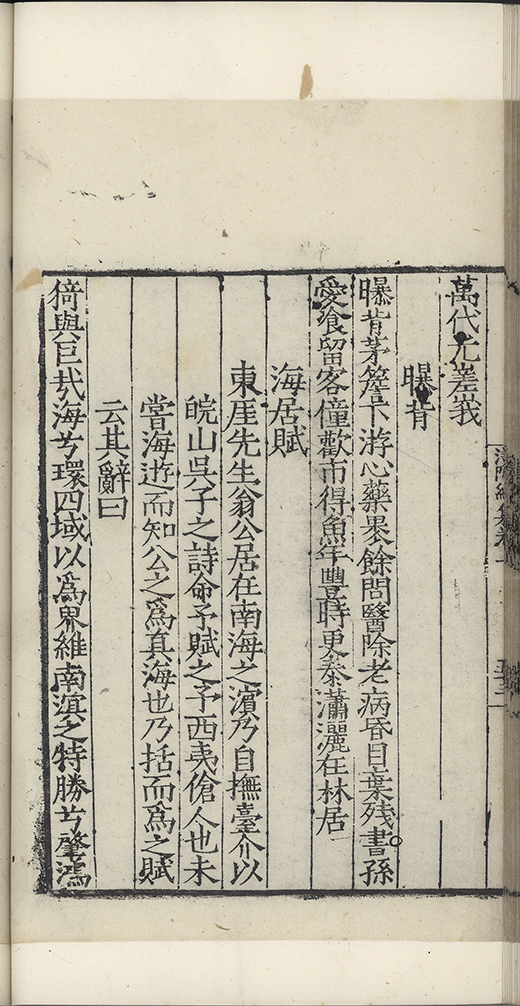 萬代尤嵳峩
曝背
曝背茅簷下游心藥褁餘問醫除老病昏目棄残書孫
愛飡留客僮歡市得魚年豊時更泰瀟灑在林居
海居賦
東厓先生翁公居在南海之濵乃自撫臺介以
皖山吳子之詩命予賦之予西夷傖人也未
嘗海遊而知公之爲真海也乃括而爲之賦
云其辭曰
猗與巨㢤海兮環四域以爲界維南溟之特勝兮肇鴻